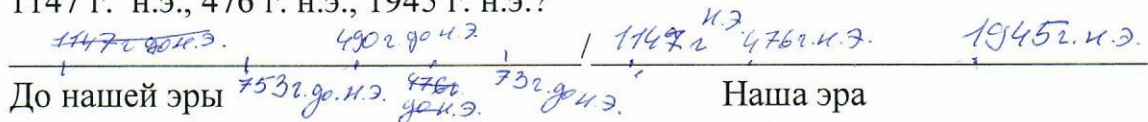 1147 г. н.э., 476 г. н.э., 1945 г. н.э.?
1147 г до н.э. 490 г до н.э / 1147 г н.э 476 г. н.э. 1945 г. н.э.
До нашей эры 753 г. до. н.э. 476г до н.э. 73 г. до н.э. Наша эра